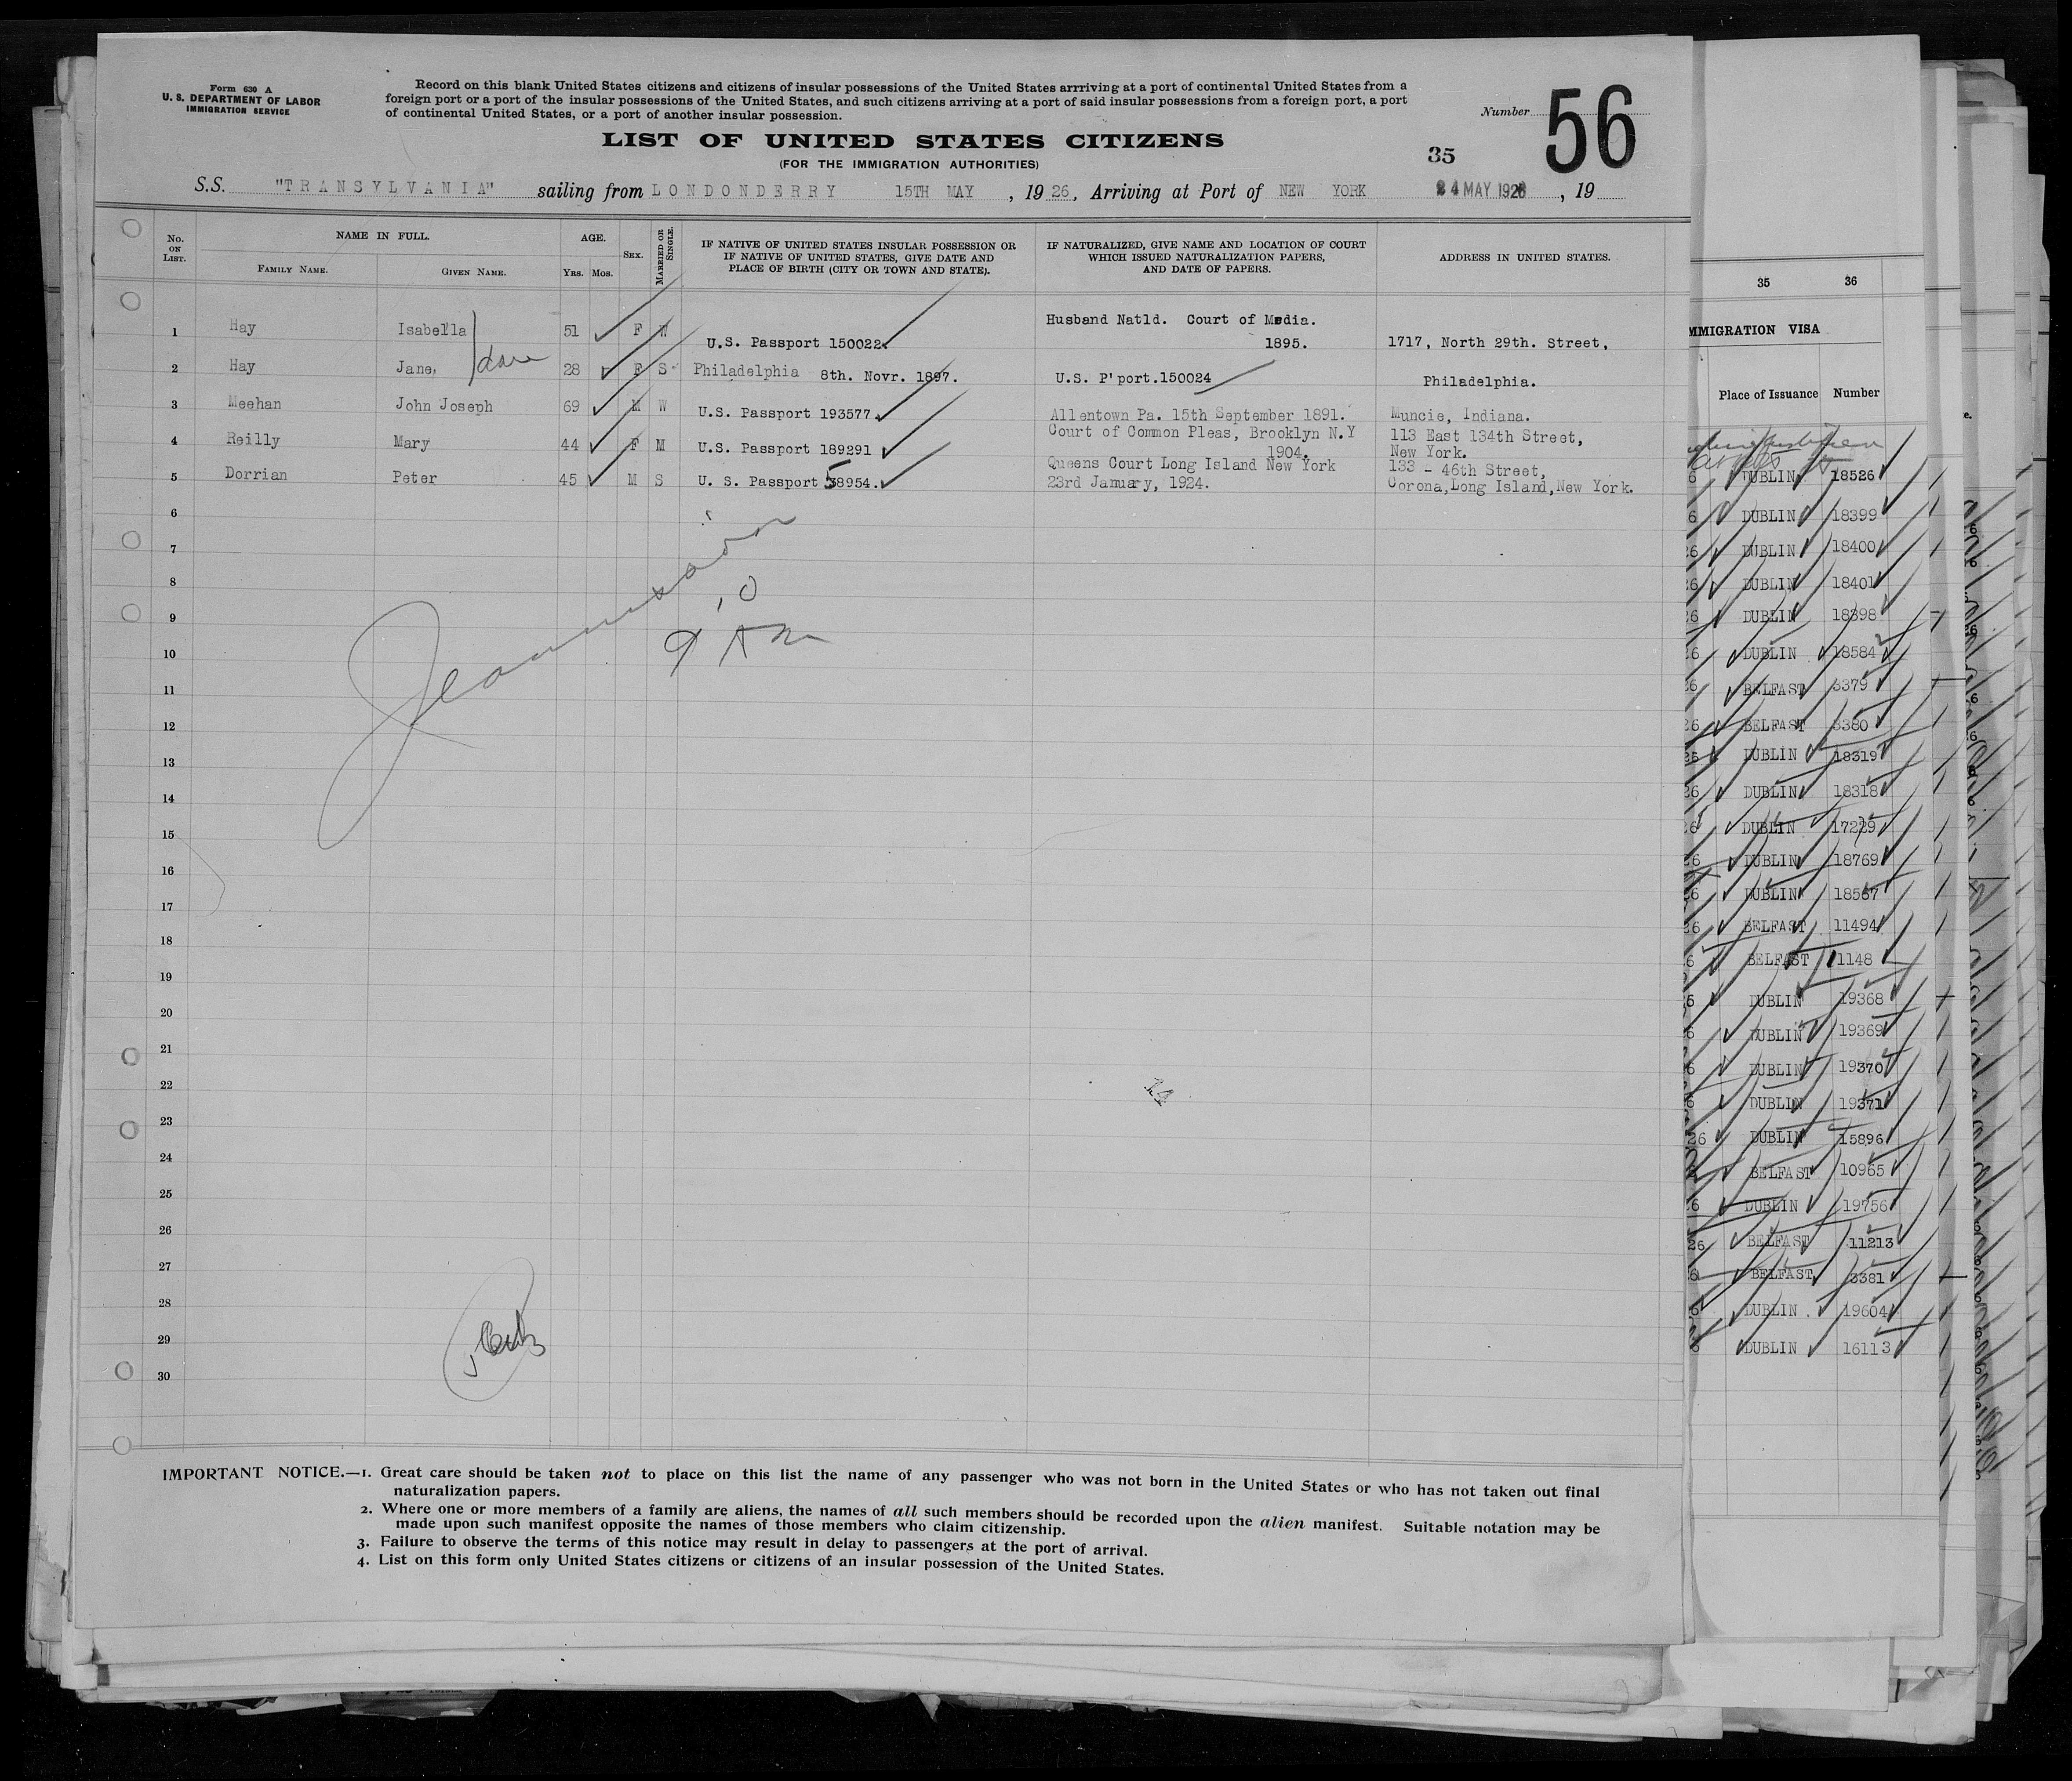 Form 630 A
U. S. DEPARTMENT OF LABOR
IMMIGRATION SERVICE
Record on this blank United States citizens and citizens of insular possessions of the United States arrriving at a port of continental United States from a
foreign port or a port of the insular possessions of the United States, and such citizens arriving at a port of said insular possessions from a foreign port, a port
of continental United States, or a port of another insular possession.
Number 56
LIST OF UNITED STATES CITIZENS
(FOR THE IMMIGRATION AUTHORITIES)
35
S.S. "TRANSYLVANIA" sailing from LONDONDERRY 15TH MAY, 1926, Arriving at Port of NEW YORK 24 MAY 1926, 19
No. ON LIST. NAME IN FULL. FAMILY NAME. GIVEN NAME. AGE. Yrs. Mos. SEX. MARRIED OR SINGLE. IF NATIVE OF UNITED STATES INSULAR POSSESSION OR IF NATIVE OF UNITED STATES, GIVE DATE AND PLACE OF BIRTH (CITY OR TOWN AND STATE). IF NATURALIZED, GIVE NAME AND LOCATION OF COURT WHICH ISSUED NATURALIZATION PAPERS, AND DATE OF PAPERS. ADDRESS IN UNITED STATES.
1 Hay Isabella 51 F W U.S. Passport 150022. Husband Natld. Court of Media. 1895. 1717, North 29th. Street,
2 Hay Jane, 28 F S Philadelphia 8th. Novr. 1897. U.S. P'port.150024 Philadelphia.
3 Meehan John Joseph 69 M W U.S. Passport 193577. Allentown Pa. 15th September 1891. Muncie, Indiana.
4 Reilly Mary 44 F M U.S. Passport 189291 Court of Common Pleas, Brooklyn N.Y 1904. 113 East 134th Street, New York.
5 Dorrian Peter 45 M S U. S. Passport 58954. Queens Court Long Island New York 23rd January, 1924. 133 - 46th Street, Corona,Long Island,New York.
6
7
8
9
10
11
12
13
14
15
16
17
18
19
20
21
22
23
24
25
26
27
28
29
30
14
IMPORTANT NOTICE.—1. Great care should be taken not to place on this list the name of any passenger who was not born in the United States or who has not taken out final
naturalization papers.
2. Where one or more members of a family are aliens, the names of all such members should be recorded upon the alien manifest. Suitable notation may be
made upon such manifest opposite the names of those members who claim citizenship.
3. Failure to observe the terms of this notice may result in delay to passengers at the port of arrival.
4. List on this form only United States citizens or citizens of an insular possession of the United States.
35 36
MMIGRATION VISA
Place of Issuance Number
DUBLIN 18526
DUBLIN 18399
DUBLIN 18400
DUBLIN 18401
DUBLIN 18398
DUBLIN 18584
BELFAST 3379
BELFAST 3380
DUBLIN 18319
DUBLIN 18318
DUBLIN 17229
DUBLIN 18769
DUBLIN 18567
BELFAST 11494
BELFAST 1148
DUBLIN 19368
DUBLIN 19369
DUBLIN 19370
DUBLIN 19371
DUBLIN 15896
BELFAST 10965
DUBLIN 19756
BELFAST 11213
BELFAST 3381
DUBLIN 19604
DUBLIN 16113